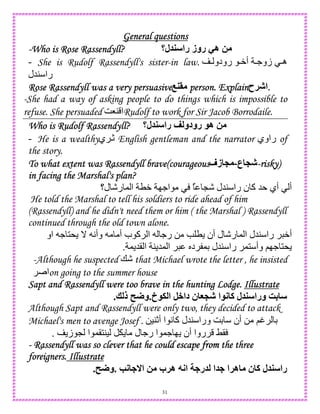 General questions
-Who is Rose Rassendyll? من هي روز راسندل؟
- She is Rudolf Rassendyll's sister-in law. هـي زوجـة أخـو رودولـف
راسندل
Rose Rassendyll was a very persuasive مقنع person. Explain اشرح.
-She had a way of asking people to do things which is impossible to
refuse. She persuaded اقنعت Rudolf to work for Sir Jacob Borrodaile.
Who is Rudolf Rassendyll? من هو رودولف راسندل؟
- He is a wealthy ثري English gentleman and the narrator راوي of
the story.
To what extent was Rassendyll brave(courageous شجاع-مجازف-risky)
in facing the Marshal's plan?
ألي أي حد كان راسندل شجاعاً في مواجهة خطة المارشال؟
He told the Marshal to tell his soldiers to ride ahead of him
(Rassendyll) and he didn't need them or him ( the Marshal ) Rassendyll
continued through the old town alone.
أخبر راسندل المارشال أن يطلب من رجاله الركوب أمامه وأنه لا يحتاجه او
يحتاجهم وأستمر راسندل بمفرده عبر المدينة القديمة.
-Although he suspected شك that Michael wrote the letter , he insisted
اصر on going to the summer house
Sapt and Rassendyll were too brave in the hunting Lodge. Illustrate
سابت وراسندل كانوا شجعان داخل الكوخ.وضح ذلك.
Although Sapt and Rassendyll were only two, they decided to attack
Michael's men to avenge Josef . بالرغم من أن سابت وراسندل كانوا أثنين
فقط قرروا أن يهاجموا رجال مايكل لينتقموا لجوزيف .
- Rassendyll was so clever that he could escape from the three
foreigners. Illustrate
راسندل كان ماهرا جدا لدرجة انه هرب من الاجانب .وضح.
31